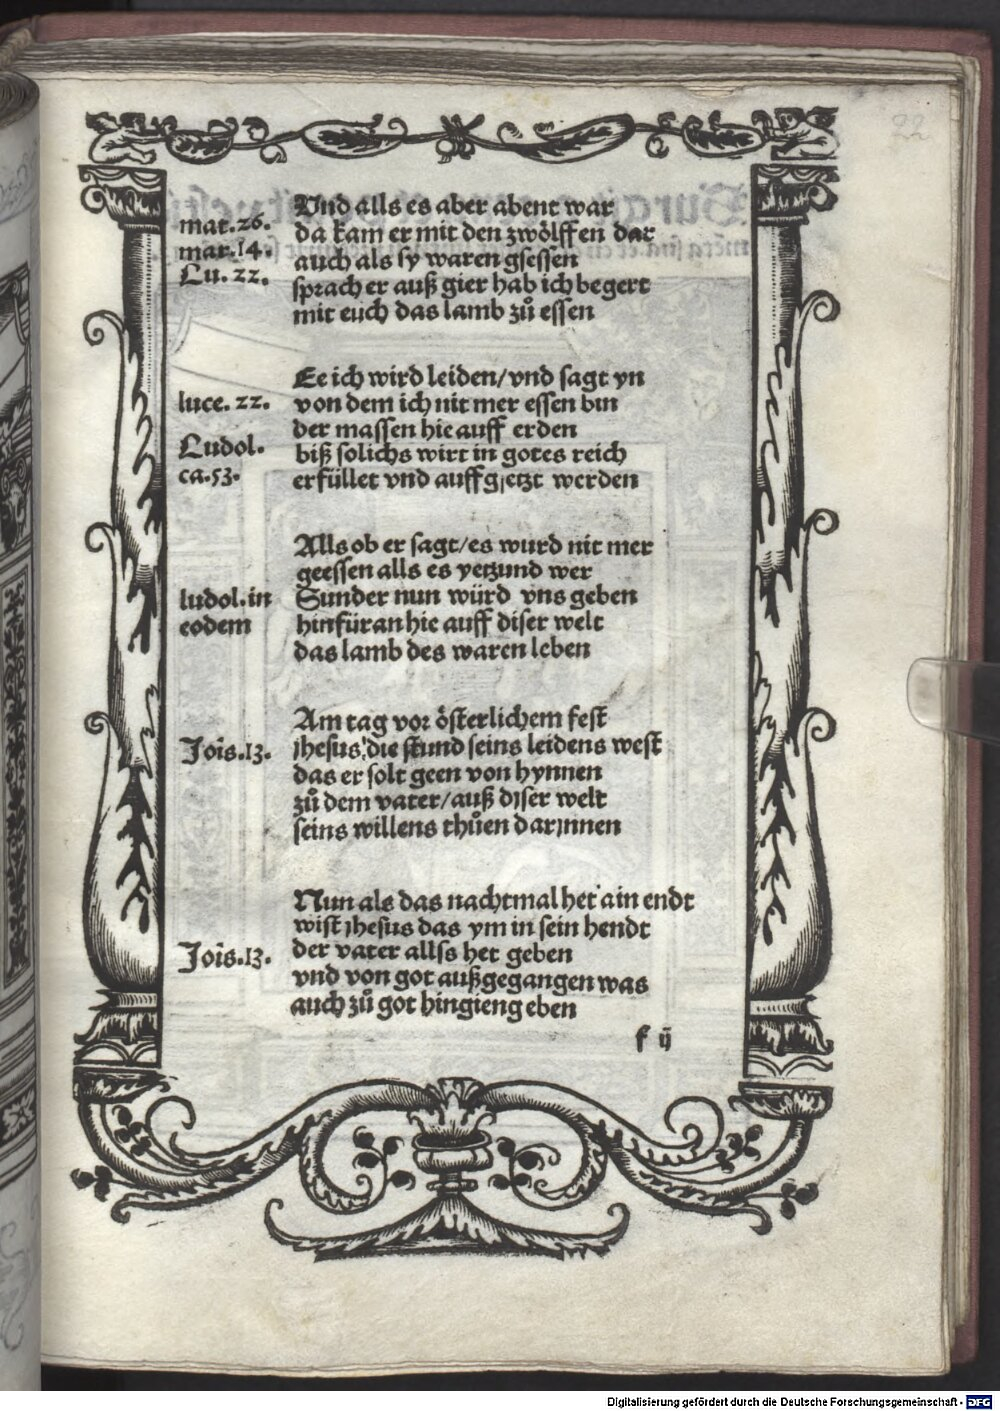 22
mat.26.
mar.14.
Lu.22.
Vnd alls es aber abent war
da kam er mit den zwölffen dar
auch als sy waren gsessen
sprach er auß gier hab ich begert
mit euch das lamb zů essen
luce.22.
Ludol.
ca.53.
Ee ich wird leiden/vnd sagt yn
von dem ich nit mer essen bin
der massen hie auff erden
biß solichs wirt in gotes reich
erfüllet vnd auffgsetzt werden
ludol.in
eodem
Alls ob er sagt/es wurd nit mer
geessen alls es yetzund wer
Sunder nun würd vns geben
hinfüran hie auff diser welt
das lamb des waren leben
Jois.13.
Am tag vor österlichem fest
jhesus die stund seins leidens west
das er solt geen von hynnen
zů dem vater/auß diser welt
seins willens thůen darjnnen
Jois.13.
Nun als das nachtmal het ain endt
wist jhesus das ym in sein hendt
der vater allss het geben
vnd von got außgegangen was
auch zů got hingieng eben
f ij
Digitalisierung gefördert durch die Deutsche Forschungsgemeinschaft - DFG